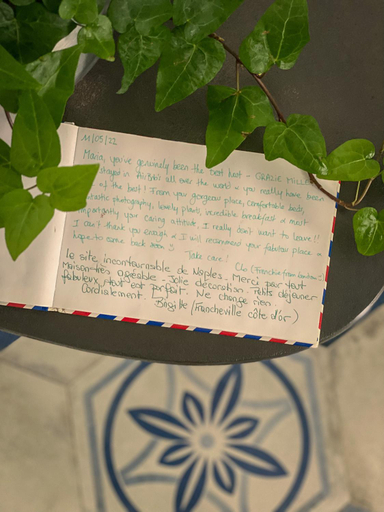 11/05/22
Maria, you've genuinely been the best host - GRAZIE MILLE
stayed in Air BnBs all over the world - you really have been
of the best! From your gorgeous place, comfortable beds,
photography, lovely plants, incredible breakfast & most
importantly your caring attitude, I really don't want to leave!!
I can't thank you enough & I will recommend your fabulous place &
hope to come back soon :)
Take care!
Clo (Frenchie from London)
Le site incontournable de Naples. Merci pour tout
Maison très agréable - Jolie décoration - Petits déjeuner
fabuleux, tout est parfait. Ne change rien
Cordialement Brigitte (Francheville côte d'or)